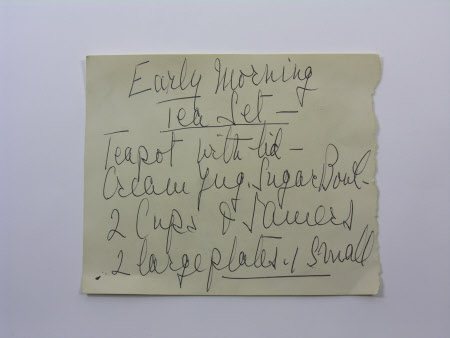 Early Morning
Tea Set —
Teapot with lid —
Cream Jug. Sugar Bowl -
2 Cups & Saucers
2 large plates. 1 Small